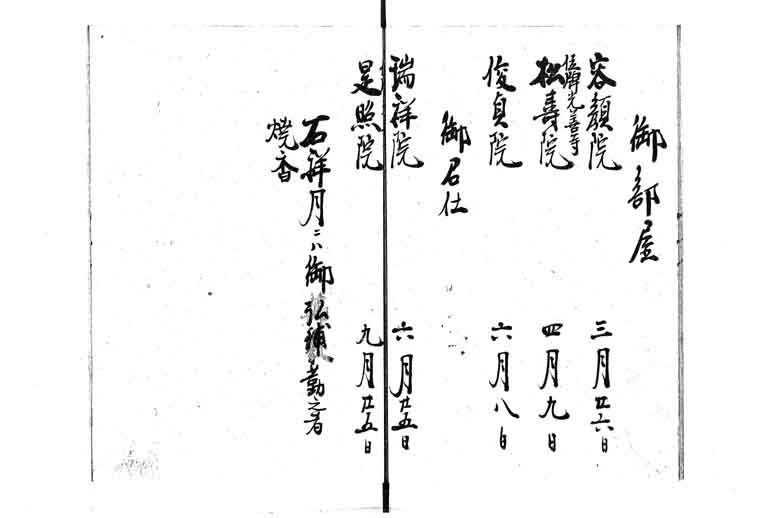 御部屋
容顔院 三月廿六日
位牌光善寺
松壽院 四月九日
俊貞院 六月八日
御召仕
瑞祥院 六月廿五日
是照院 九月廿五日
右祥月ニハ御弘補勤之者
燒香